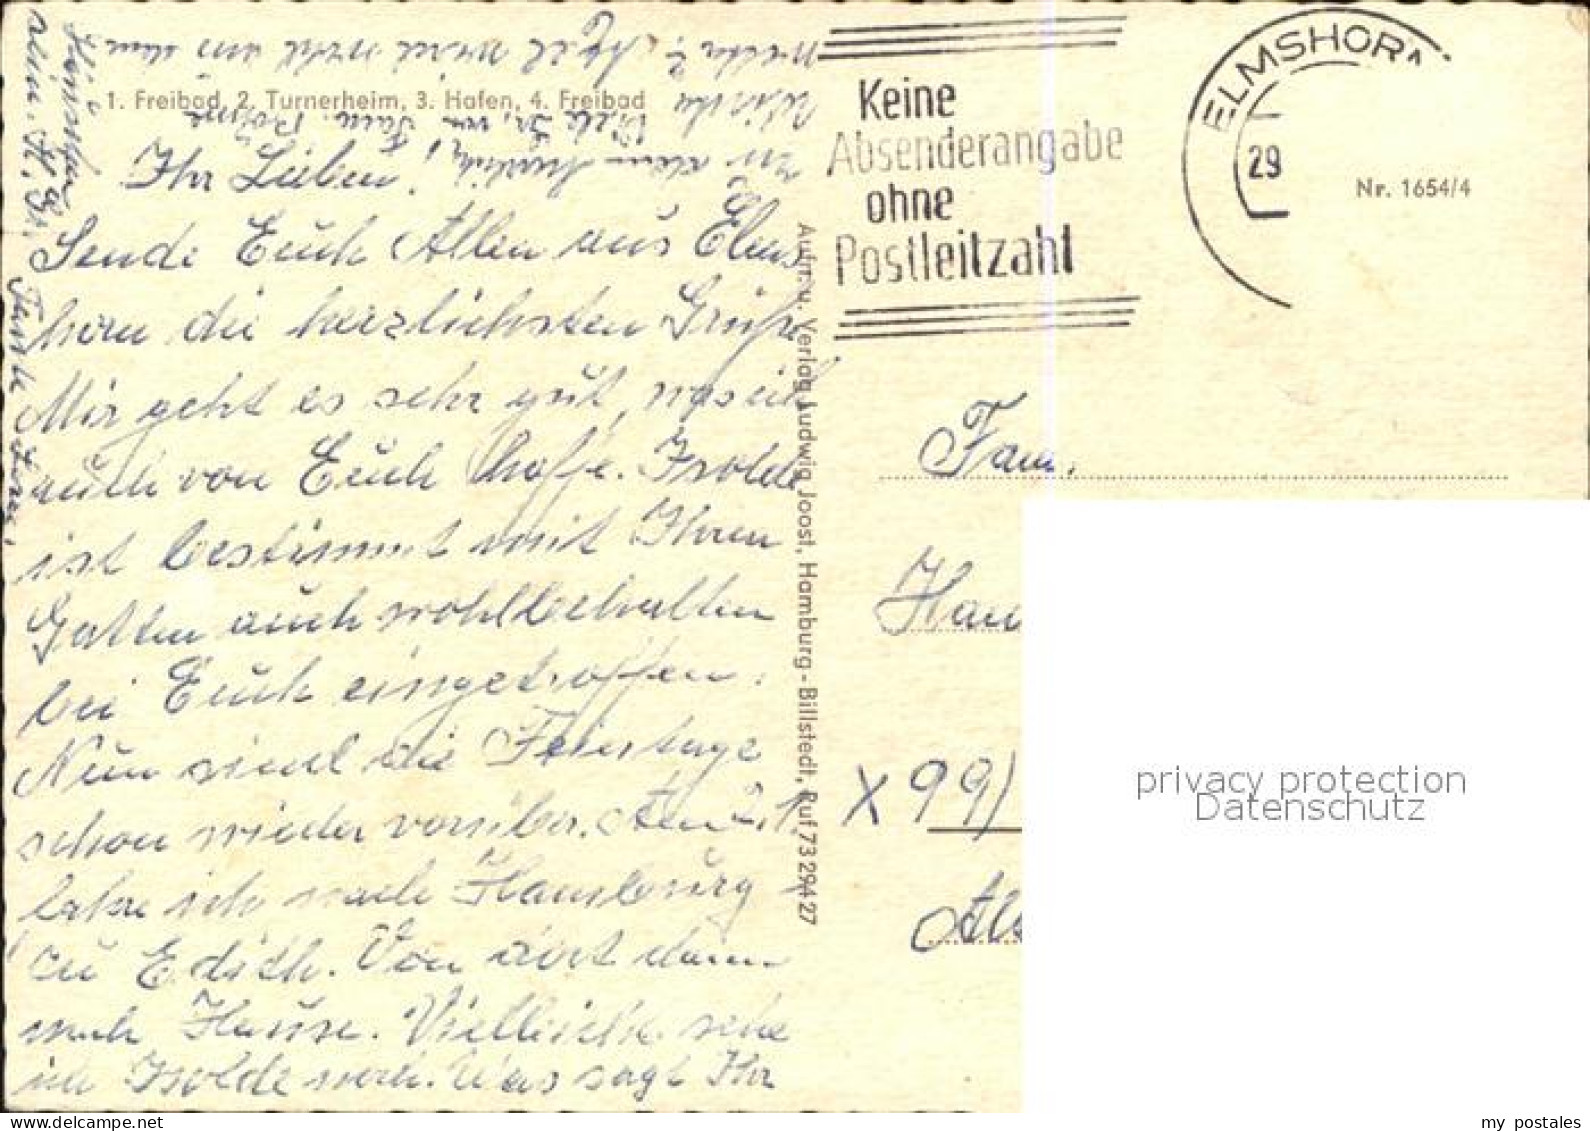 1. Freibad, 2. Turnerheim, 3. Hafen, 4. Freibad
Ihr Lieben!
Sende Euch Allen aus Elms
horn die herzlichsten Grüße
Mir geht es sehr gut, was ich
auch von Euch hoffe. Isolde
ist bestimmt mit Ihren
Gatten auch wohlbehalten
bei Euch eingetroffen.
Nun sind die Feiertage
schon wieder vorüber. Am 2.1.
fahre ich nach Hamburg
zu Edith. Von dort dann
nach Hause. Vielleicht sehe
ich Isolde noch. Was sagt Ihr
zu dem
wird wohl um den
Viele Gr. von Fam.
Tante
Aufn. u. Verlag Ludwig Joost, Hamburg-Billstedt, Ruf 73 294 27
Keine
Absenderangabe
ohne
Postleitzahl
ELMSHORN
29
Nr. 1654/4
Fam.
Han
X 99)
Als
privacy protection
Datenschutz
my postales